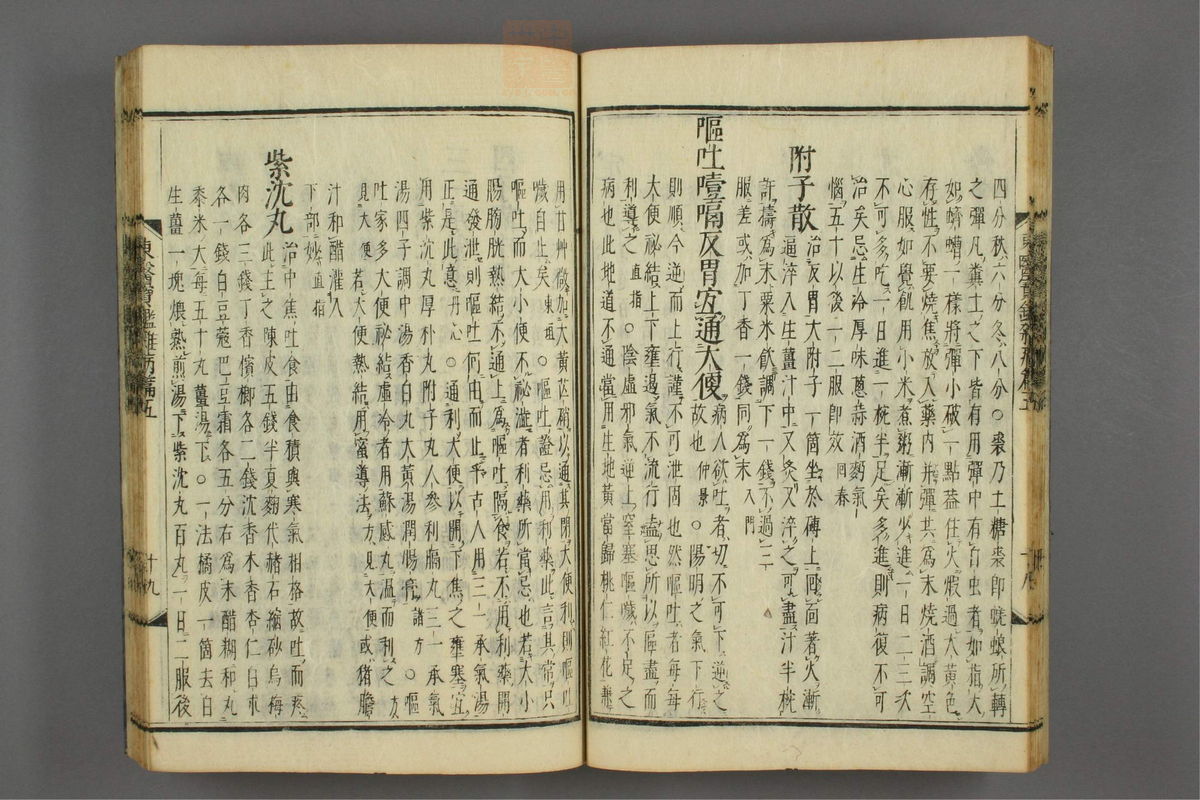 四分秋六分冬八分○裊乃土糖裊卽蜣蜋所轉
之彈凡糞土之下皆有用彈中有白虫者如指大
如蠐螬一樣將彈小破一點蓋住火煆過大黃色
存性不要燒焦放入藥內飛彈共爲末燒酒調空
心服如覺飢用小米煮粥漸漸少進一日二三次
不可多吃一日進一椀半足矣多進則病復不可
治矣忌生冷厚味葱蒜酒麪氣
惱五十以後一二服卽效 回春
附子散 治反胃大附子一箇坐於磚上四面著火漸
逼淬入生薑汁中又炙又淬之可盡汁半椀
許擣爲末粟米飮調下一錢不過三
服差或加丁香一錢同爲末 入門
嘔吐噎膈反胃宜通大便 病人欲吐者切不可下逆之
故也 仲景○陽明之氣下行
則順今逆而上行謹不可泄固也然嘔吐者每每
大便祕結上下壅遏氣不流行盍思所以區盡而
利導之 直指○陰虛邪氣逆上窒塞嘔噦不足之
病也此地道不通當用生地黃當歸桃仁紅花
用甘艸微加大黃芒硝以通其閉大便利則嘔吐
噦自止矣 東垣○嘔吐證忌用利藥此言其常只
嘔吐而大小便不祕澁者利藥所當忌也若大小
腸胞熱結不通上爲嘔吐隔食若不用利藥開
通發泄則嘔吐何由而止乎古人用三一承氣湯
正是此意 丹心○通利大便以開下焦之壅塞宜
用紫沈丸厚朴丸附子丸人參利膈丸三一承氣
湯四子調中湯香白丸大黃湯潤腸膏 諸方○嘔
吐家多大便祕結虛冷者用蘇感丸溫而利之 方
見大便若大便熱結用蜜導法 方見大便或猪膽
汁和醋灌入
下部妙 直指
紫沈丸 治中焦吐食由食積與寒氣相格故吐而疼
此主之陳皮五錢半夏麴代赭石縮砂烏梅
肉各三錢丁香檳榔各二錢沈香木香杏仁白朮
各一錢白豆蔲巴豆霜各五分右爲末醋糊和丸
黍米大每五十丸薑湯下○一法橘皮一箇去白
生薑一塊煨熟煎湯下紫沈丸百丸一日二服後
東醫寶鑑雜病篇五
十九